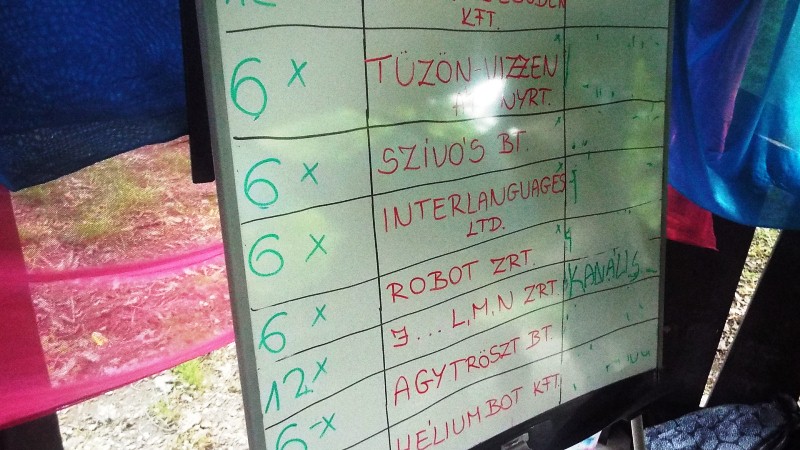 KFT.
6 x TÜZÖN-VIZZEN
NYRT.
6 x SZÍVÓ'S BT.
6 x INTERLANGUAGES
LTD.
6 x ROBOT ZRT.
... L,M,N ZRT. KANÁLIS
12 x AGYTRÖSZT BT.
6 -x HÉLIUMBOT KFT.